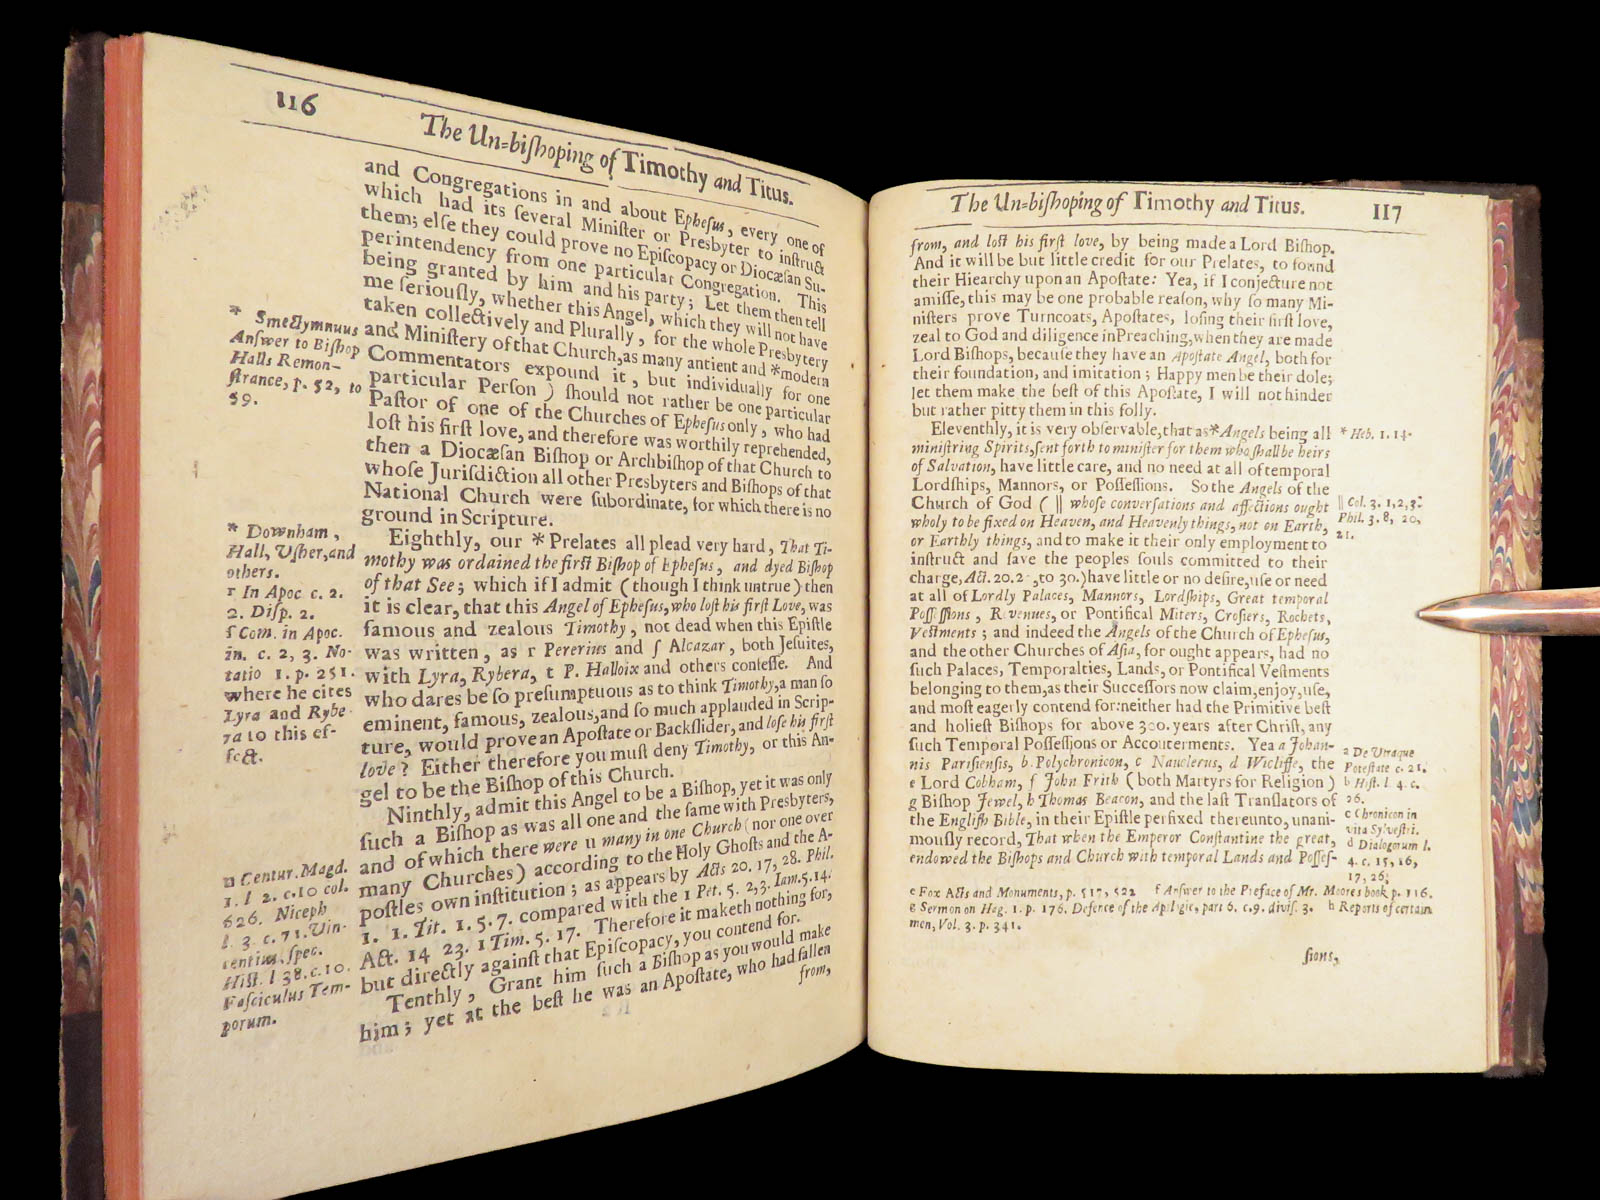 116
The Un-biſhoping of Timothy and Titus.
and Congregations in and about Epheſus, every one of
which had its ſeveral Miniſter or Presbyter to inſtruct
them; elſe they could prove no Epiſcopacy or Diocæſan Su-
perintendency from one particular Congregation. This
being granted by him and his party; Let them then tell
me ſeriouſly, whether this Angel, which they will not have
taken collectively and Plurally, for the whole Presbytery
and Miniſtery of that Church, as many antient and *modern
Commentators expound it, but individually for one
particular Perſon) ſhould not rather be one particular
Paſtor of one of the Churches of Epheſus only, who had
loſt his firſt love, and therefore was worthily reprehended,
then a Diocæſan Biſhop or Archbiſhop of that Church to
whoſe Juriſdiction all other Presbyters and Biſhops of that
National Church were ſubordinate, for which there is no
ground in Scripture.
Eighthly, our *Prelates all plead very hard, That Ti-
mothy was ordained the firſt Biſhop of Epheſus, and dyed Biſhop
of that See; which if I admit (though I think untrue) then
it is clear, that this Angel of Epheſus, who loſt his firſt Love, was
famous and zealous Timothy, not dead when this Epiſtle
was written, as r Pererius and ſ Alcazar, both Jeſuites,
with Lyra, Rybera, t P. Halloix and others confeſſe. And
who dares be ſo preſumptuous as to think Timothy, a man ſo
eminent, famous, zealous, and ſo much applauded in Scrip-
ture, would prove an Apoſtate or Backſlider, and loſe his firſt
love? Either therefore you muſt deny Timothy, or this An-
gel to be the Biſhop of this Church.
Ninthly, admit this Angel to be a Biſhop, yet it was only
ſuch a Biſhop as was all one and the ſame with Presbyters,
and of which there were u many in one Church (nor one over
many Churches) according to the Holy Ghoſts and the A-
poſtles own inſtitution; as appears by Acts 20. 17, 28. Phil.
1. 1. Tit. 1. 5. 7. compared with the 1 Pet. 5. 2, 3. Iam. 5. 14.
Act. 14 23. 1 Tim. 5. 17. Therefore it maketh nothing for,
but directly againſt that Epiſcopacy, you contend for.
Tenthly, Grant him ſuch a Biſhop as you would make
him; yet at the beſt he was an Apoſtate, who had fallen
from,
* Smectymnuus
Anſwer to Biſhop
Halls Remon-
ſtrance, p. 52, to
59.
* Downham,
Hall, Uſher, and
others.
r In Apoc c. 2.
2. Diſp. 2.
ſ Com. in Apoc.
in. c. 2, 3. No-
tatio 1. p. 251.
where he cites
Lyra and Rybe-
ra to this ef-
fect.
u Centur. Magd.
1. l 2. c. 10 col.
626. Niceph
l. 3. c. 71. Vin-
centius, ſpec.
Hiſt. l 38. c. 10.
Faſciculus Tem-
porum.
The Un-biſhoping of Timothy and Titus.
117
from, and loſt his firſt love, by being made a Lord Biſhop.
And it will be but little credit for our Prelates, to found
their Hiearchy upon an Apoſtate: Yea, if I conjecture not
amiſſe, this may be one probable reaſon, why ſo many Mi-
niſters prove Turncoats, Apoſtates, loſing their firſt love,
zeal to God and diligence in Preaching, when they are made
Lord Biſhops, becauſe they have an Apoſtate Angel, both for
their foundation, and imitation; Happy men be their dole;
let them make the beſt of this Apoſtate, I will not hinder
but rather pitty them in this folly.
Eleventhly, it is very obſervable, that as *Angels being all
miniſtring Spirits, ſent forth to miniſter for them who ſhall be heirs
of Salvation, have little care, and no need at all of temporal
Lordſhips, Mannors, or Poſſeſſions. So the Angels of the
Church of God (|| whoſe converſations and affections ought
wholy to be fixed on Heaven, and Heavenly things, not on Earth,
or Earthly things, and to make it their only employment to
inſtruct and ſave the peoples ſouls committed to their
charge, Act. 20. 2-, to 30.) have little or no deſire, uſe or need
at all of Lordly Palaces, Mannors, Lordſhips, Great temporal
Poſſeſſions, Revenues, or Pontifical Miters, Croſiers, Rochets,
Veſtments; and indeed the Angels of the Church of Epheſus,
and the other Churches of Aſia, for ought appears, had no
ſuch Palaces, Temporalties, Lands, or Pontifical Veſtments
belonging to them, as their Succeſſors now claim, enjoy, uſe,
and moſt eagerly contend for: neither had the Primitive beſt
and holieſt Biſhops for above 300. years after Chriſt, any
ſuch Temporal Poſſeſſions or Accouterments. Yea a Johan-
nis Pariſienſis, b Polychronicon, c Nauclerus, d Wicliffe, the
e Lord Cobham, f John Frith (both Martyrs for Religion)
g Biſhop Jewel, h Thomas Beacon, and the laſt Tranſlators of
the Engliſh Bible, in their Epiſtle perfixed thereunto, unani-
mouſly record, That when the Emperor Conſtantine the great,
endowed the Biſhops and Church with temporal Lands and Poſſeſ-
* Heb. 1. 14.
|| Col. 3. 1, 2, 3.
Phil. 3. 8, 20,
21.
a De Utraque
Poteſtate c. 21.
b Hiſt. l. 4. c.
26.
c Chronicon in
vita Sylveſtri.
d Dialogorum l.
4. c. 15, 16,
17, 26,
e Fox Acts and Monuments, p. 517, 522 f Anſwer to the Preface of Mr. Moores book p. 116.
g Sermon on Hag. 1. p. 176. Defence of the Apilogie, part 6. c. 9. diviſ. 3. h Reports of certain
men, Vol. 3. p. 341.
ſions,